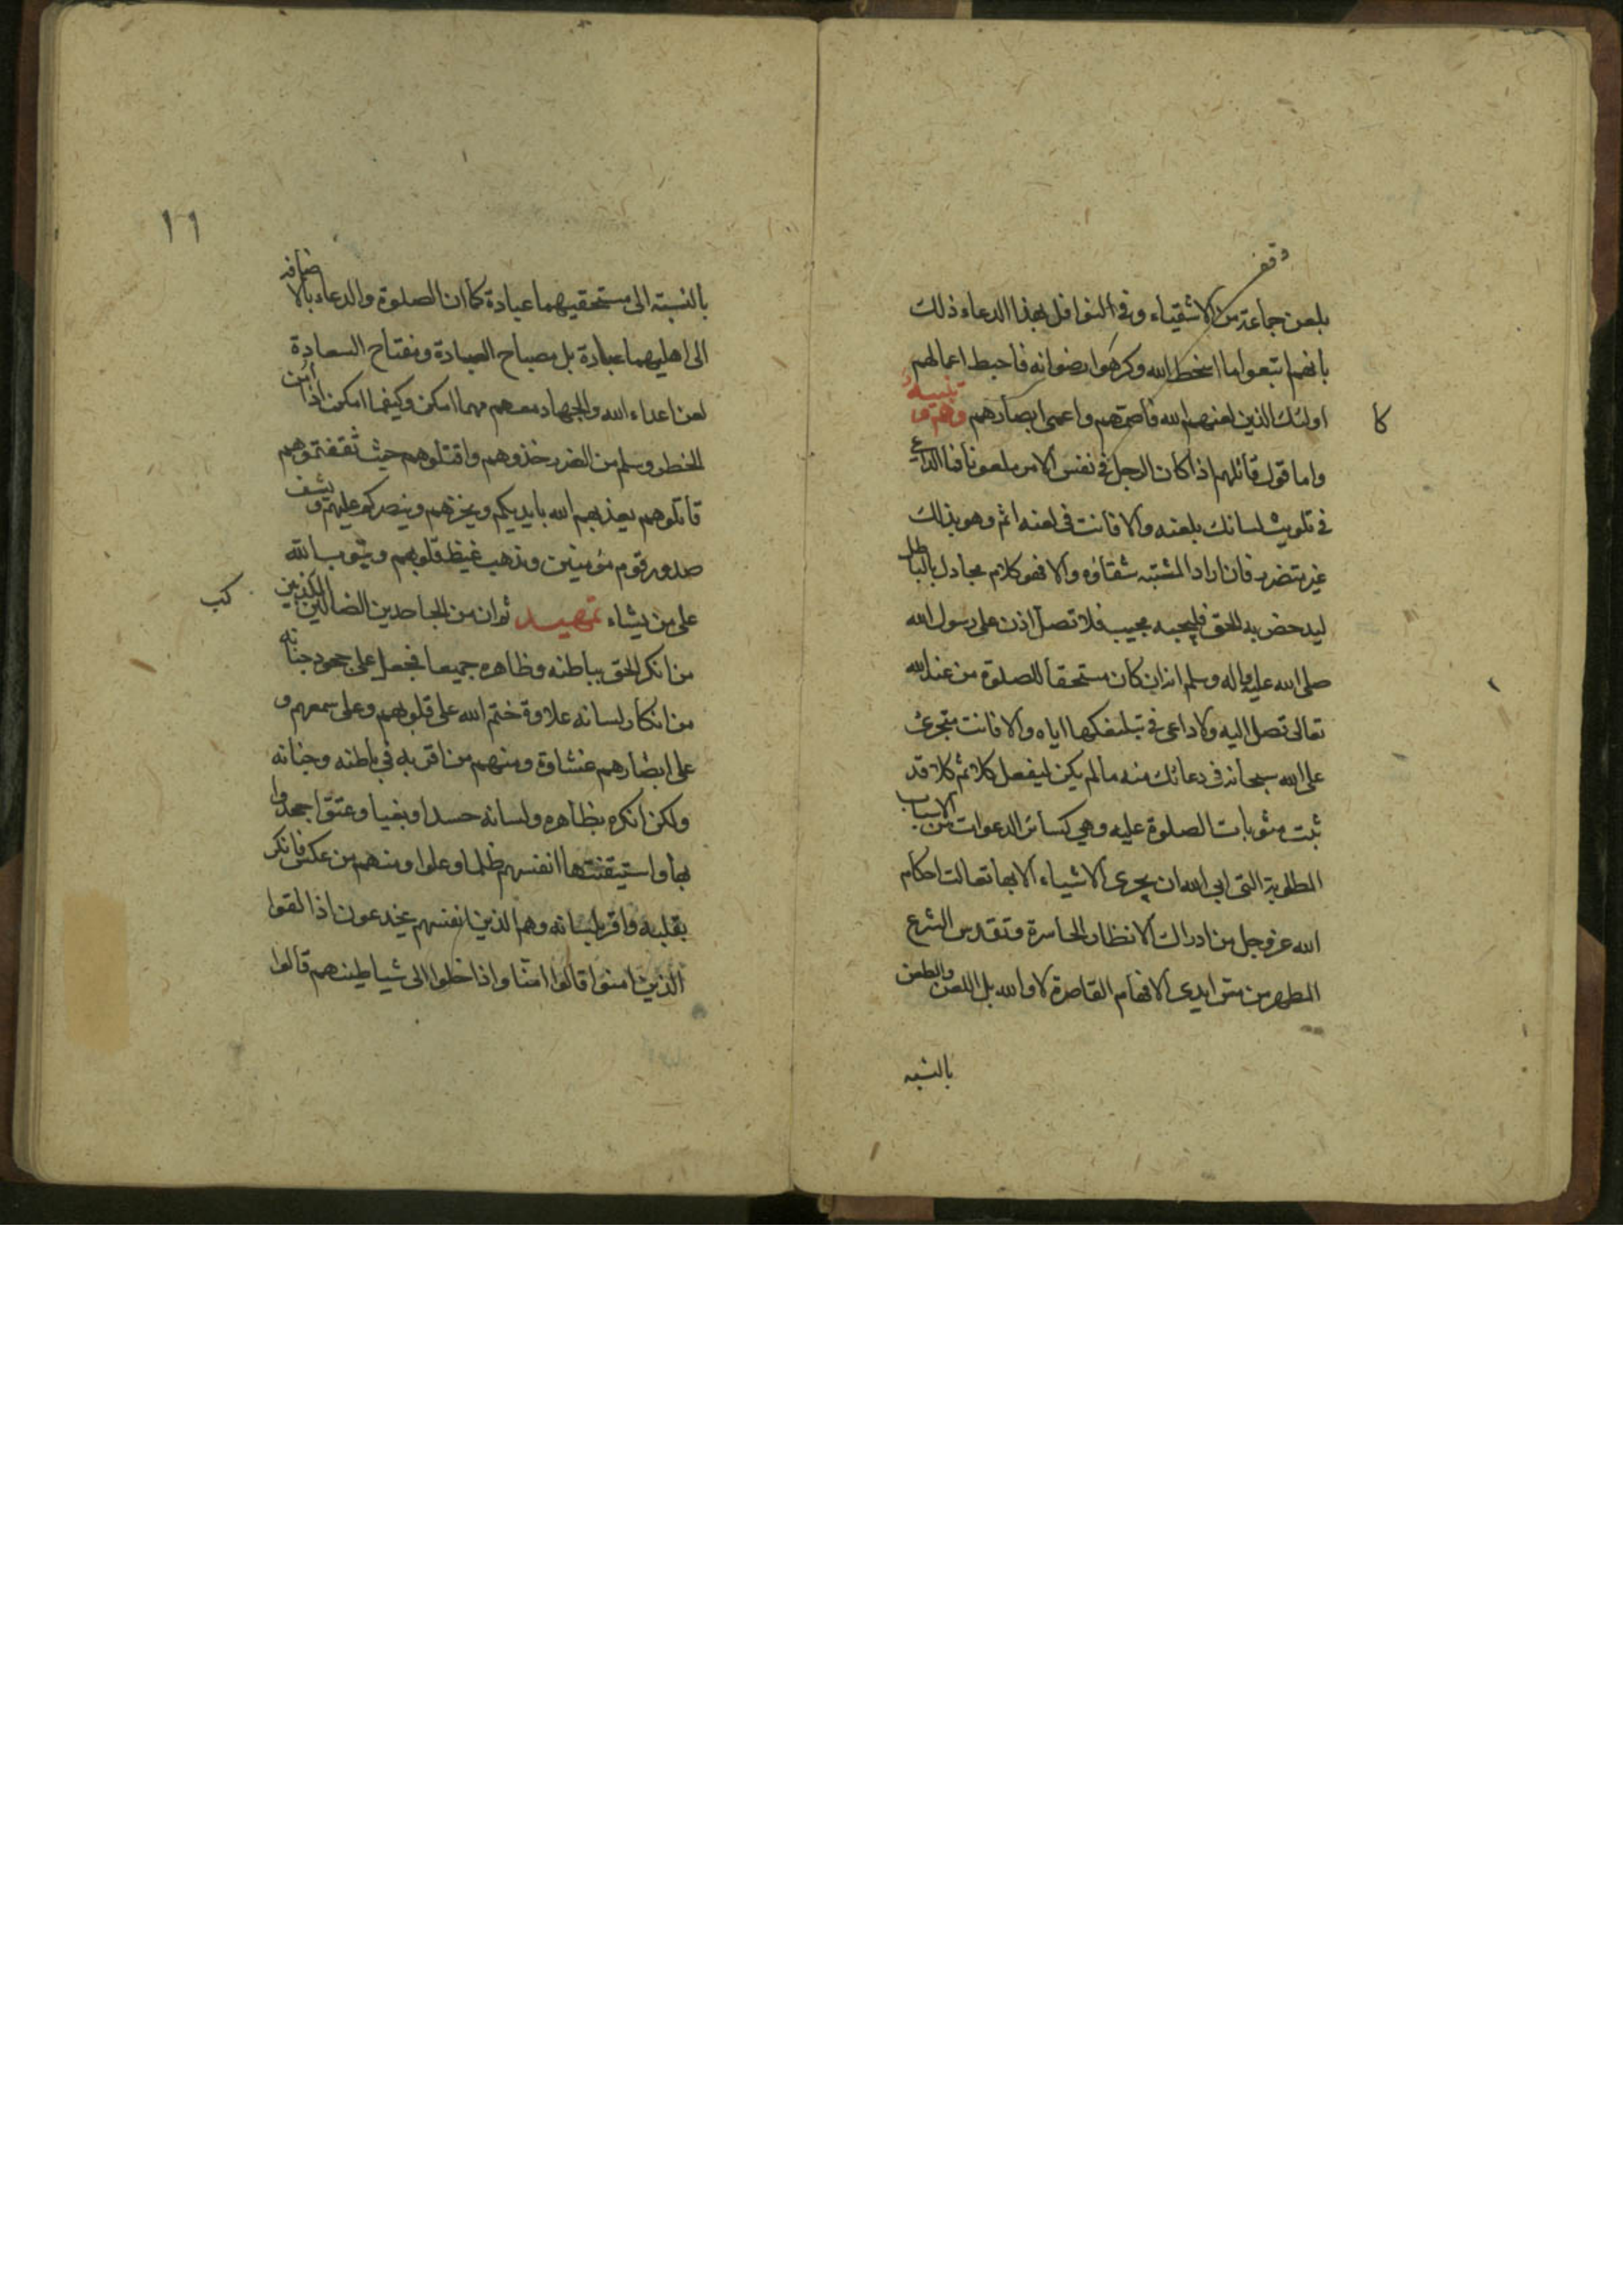 وقف
بلعن جماعة من الاشقياء وفى النوافل بهذا الدعاء ذلك
بانهم اتبعوا ما اسخط الله وكرهوا رضوانه فاحبط اعمالهم
كا
اولئك الذين لعنهم الله فاصمهم واعمى ابصارهم وهم و تنبيه
واما قول قائلهم اذا كان الرجل فى نفس الامر ملعونا فما الداعي
فى تلويث لسانك بلعنه والا فانت فى لعنه اثم وهو بذلك
غير متضرر فان اراد المشتبه شقاؤه والا فهو كلام مجادل بالباطل
ليدحض به الحق فليجبه مجيب فلا تصل اذن على رسول الله
صلى الله عليه واله وسلم انه ان كان مستحقا للصلوة من عند الله
تعالى تصل اليه ولا داعى فى اياه والا فانت متجرئ
على الله سبحانه فى دعائك منه ما لم يكن ليفعل كلا ثم كلا قد
ثبت مثوبات الصلوة عليه وهي كسائر الدعوات من الاسباب
المطلوبة التى ابى الله ان يجرى الاشياء الا بها تعالت احكام
الله عز وجل من ادراك الانظار الحاسرة وتقدس الشرع
المطهر من مس ايدى الافهام القاصرة لا والله بل اللعن والطعن
بالنسبه
١٦
بالنسبة الى مستحقيهما عبادة كما ان الصلوة والدعاء بالاضافه
الى اهليهما عبادة بل مصباح العبادة ومفتاح السعادة
لعن اعداء الله والجهاد معهم مهما امكن وكيفما امكن اذا امن
الخطر وسلم من الضرر خذوهم واقتلوهم حيث ثقفتموهم
قاتلوهم يعذبهم الله بايديكم ويخزهم وينصركم عليهم ويشف
صدور قوم مؤمنين ويذهب غيظ قلوبهم ويتوب الله
على من يشاء تمهيد ثم ان من الجاحدين الضالين المكذبين
كب
من انكر الحق بباطنه وظاهره جميعا فجعل على جحود جنانه
من انكار لسانه علاوة ختم الله على قلوبهم وعلى سمعهم و
على ابصارهم غشاوة ومنهم من اقر به في باطنه وجنانه
ولكن انكره بظاهره ولسانه حسدا وبغيا وعتوا جحدوا
بها واستيقنتها انفسهم ظلما وعلوا ومنهم من عكس فانكر
بقلبه واقر بلسانه وهم الذين انفسهم يخدعون اذا لقوا
الذين امنوا قالوا امنا واذا خلوا الى شياطينهم قالوا